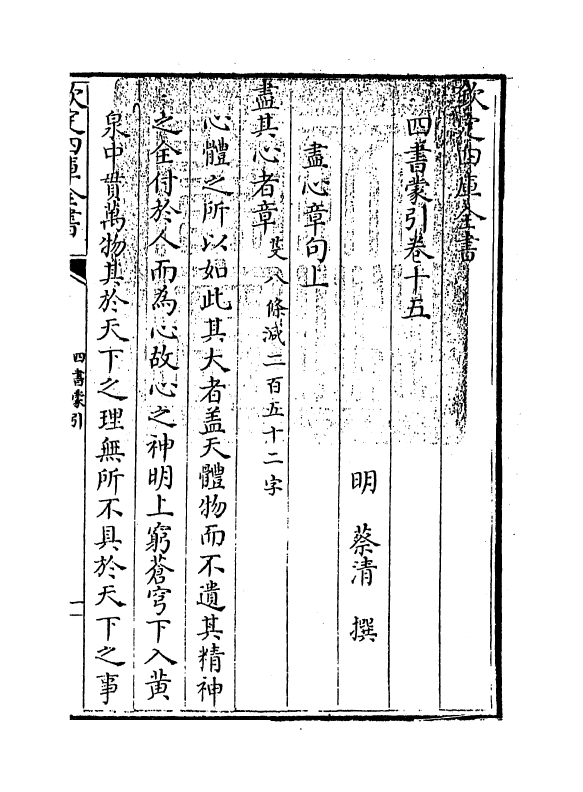 欽定四庫全書
四書蒙引卷十五
明 蔡清 撰
盡心章句上
盡其心者章 更八條減二百五十二字
心體之所以如此其大者盖天體物而不遺其精神
之全付於人而為心故心之神明上窮蒼穹下入黄
泉中貫萬物其於天下之理無所不具於天下之事
欽定四庫全書
四書蒙引
一